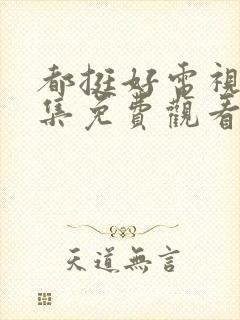 都挺好電視
集免費觀看
天道無言